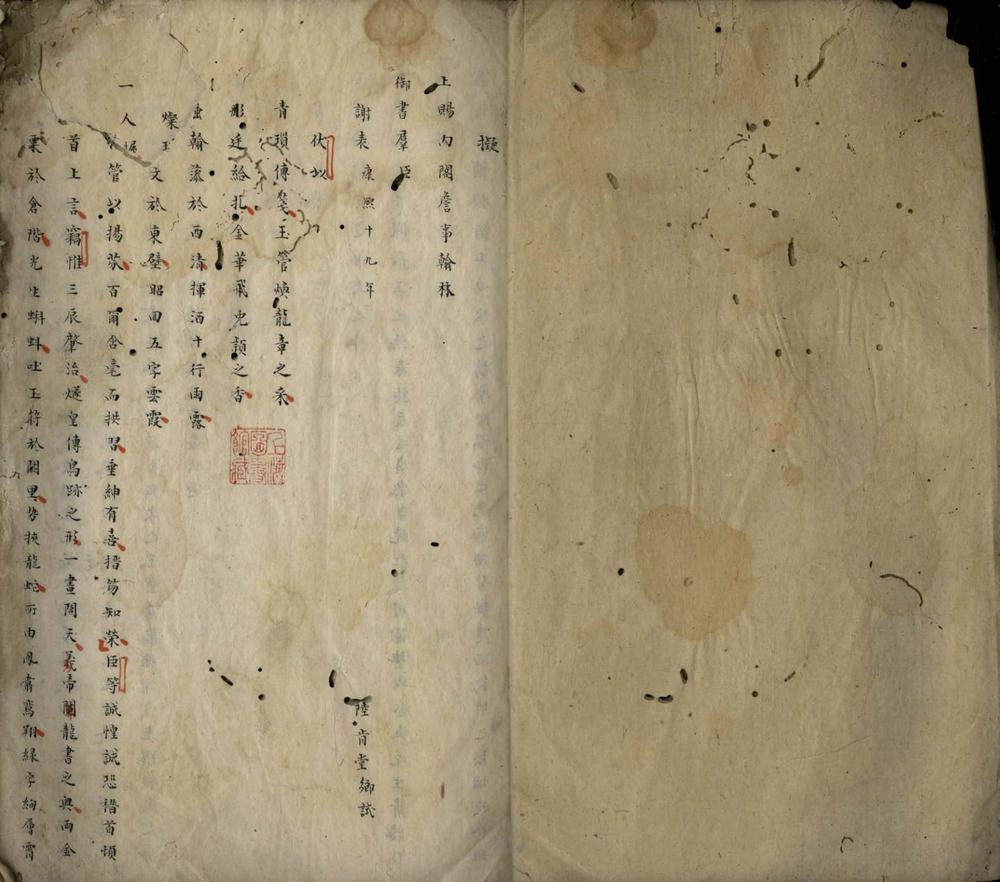 擬
上賜內閣詹事翰林
御書羣臣
謝表 康熙十九年
陸肯堂鄉試
伏以
青瑣傳箋玉管煥龍章之采
彤廷給札金華飛兔穎之香
翰藻於西清揮洒十行雨露
燦玉文於東壁昭回五字雲霞
一人握
管以揚芬百爾含毫而拱習垂紳有喜搢笏知榮臣等誠惶誠恐稽首頓
首上言竊惟三辰肇治燧皇傳鳥跡之形一畫開天羲帝闡龍書之奧雨金
粟於倉階光生蝌蚪吐玉符於闕里勢挾龍蛇所由鳳翥鸞翔綠字絢層霄